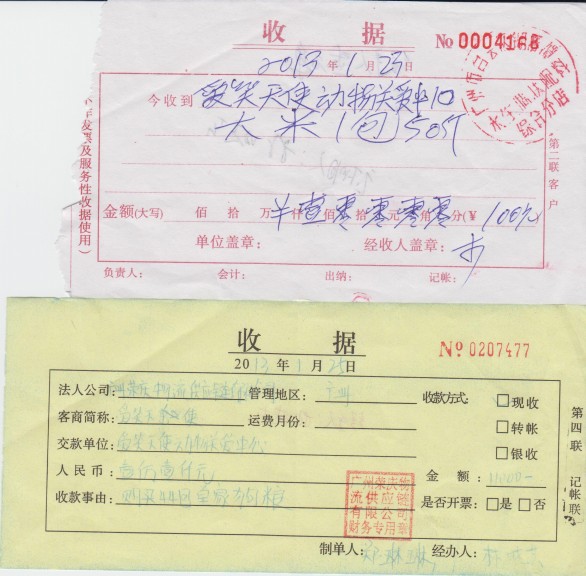 收 据
No 0004168
2013年1月23日
今收到 爱笑天使动物关爱中心
大米1包50斤
金额(大写) 佰 拾 万 仟 佰 拾 元 角 分(¥ 100元
单位盖章: 经收人盖章:
负责人: 会计: 出纳: 记帐:
第二联客户
发票及服务性收据使用)
综合分店
收 据
No 0207477
2013年1月25日
法人公司: 管理地区: 广州 收款方式: □现收
客商简称: 爱笑天使 运费月份: □转帐
交款单位: 爱笑天使动物关爱中心 □银收
人民币: 壹仟壹仟元 金额: 11000-
收款事由: 皇家狗粮 是否开票: □是 □否
第四联 记帐联
广州荣庆物
流供应链
有限公司
财务专用章
制单人: 郑琳琳 经办人: